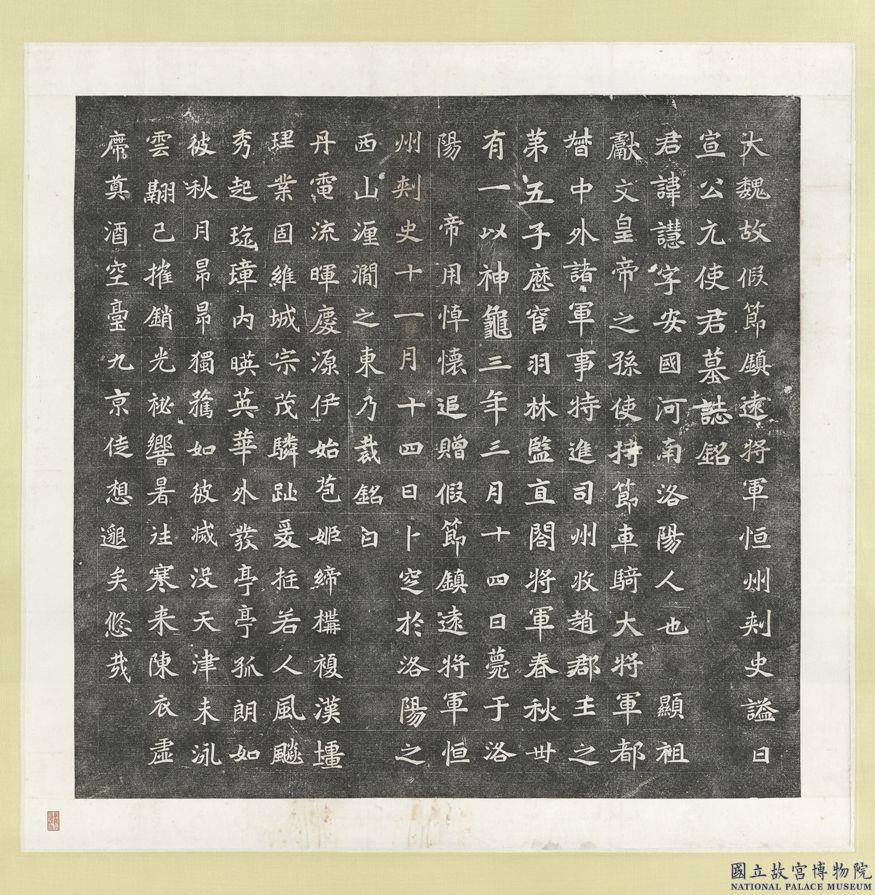 大魏故假節鎮遠將軍恒州刾史謚曰
宣公元使君墓誌銘
君諱譿字安國河南洛陽人也　顯祖
獻文皇帝之孫使持節車騎大將軍都
督中外諸軍事特進司州牧趙郡王之
第五子歷官羽林監直閤將軍春秋丗
有一以神龜三年三月十四日薨于洛
陽　帝用悼懷追贈假節鎮遠將軍恒
州刾史十一月十四日卜窆於洛陽之
西山瀍澗之東乃裁銘曰
丹電流暉慶源伊始苞姬締構複漢壃
理業固維城宗茂驎趾爰挺若人風飈
秀起琁璋內暎英華外發亭亭孤朗如
彼秋月昂昂獨騖如彼滅没天津未泳
雲翮已摧銷光祕響暑往寒来陳衣虛
席奠酒空臺九京徒想邈矣悠哉
國立故宮博物院
NATIONAL PALACE MUSEUM